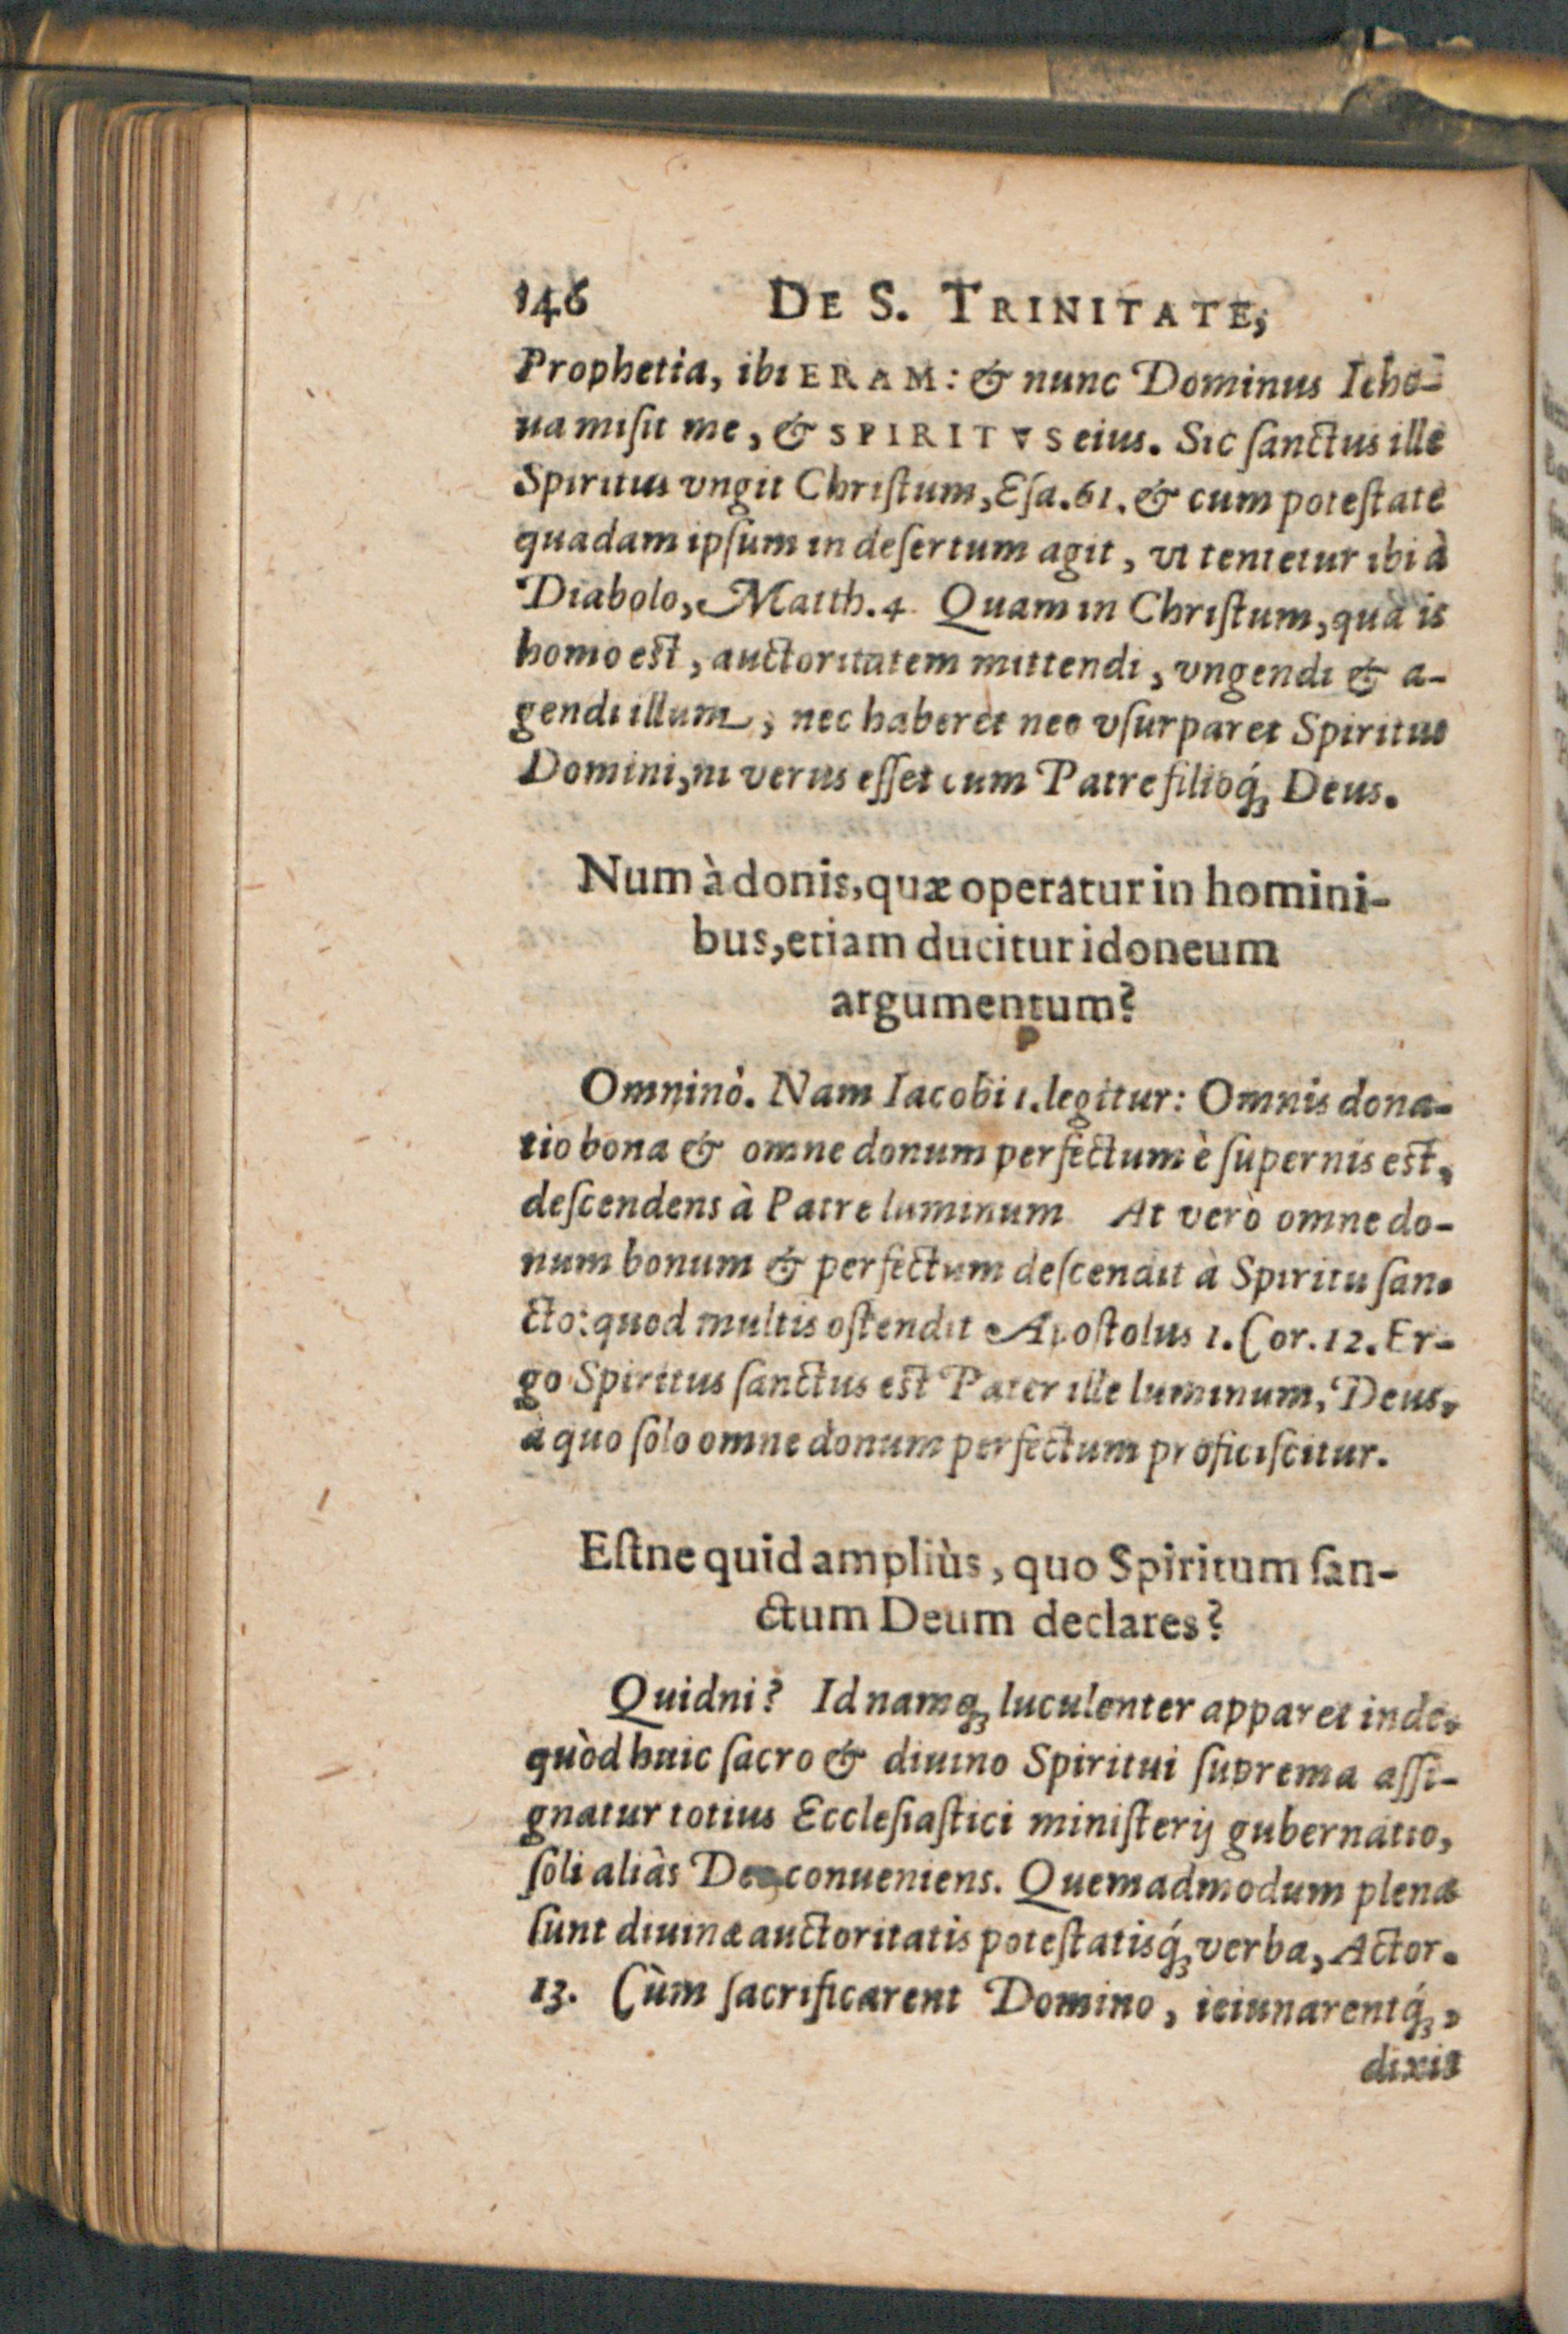 146 DE S. TRINITATE,
Prophetia, ibi ERAM: & nunc Dominus Ieho-
ua misit me, & SPIRITVS eius. Sic ſanctus ille
Spiritus vngit Chriſtum, Eſa. 61. & cum poteſtate
quadam ipſum in deſertum agit, vt tentetur ibi à
Diabolo, Matth. 4 Quam in Chriſtum, quà is
homo est, auctoritatem mittendi, vngendi & a-
gendi illum, nec haberet nec vſurparet Spiritus
Domini, ni verus eſſet cum Patre filioq́ꝫ Deus.
Num à donis, quæ operatur in homini-
bus, etiam ducitur idoneum
argumentum?
Omninò. Nam Iacobi 1. legitur: Omnis dona-
tio bona & omne donum perfectum è ſupernis est,
deſcendens à Patre luminum At verò omne do-
num bonum & perfectum deſcendit à Spiritu ſan-
cto: quod multis oſtendit Apoſtolus 1. Cor. 12. Er-
go Spiritus ſanctus est Pater ille luminum, Deus,
à quo ſolo omne donum perfectum proficiſcitur.
Eſtne quid ampliùs, quo Spiritum ſan-
ctum Deum declares?
Quidni? Id namqꝫ luculenter apparet inde,
quòd huic ſacro & diuino Spiritui ſuprema aſſi-
gnatur totius Eccleſiaſtici miniſterij gubernatio,
ſoli aliàs Deo conueniens. Quemadmodum plena
ſunt diuinæ auctoritatis poteſtatisq́ꝫ verba, Actor.
13. Cùm ſacrificarent Domino, ieiunarentq́ꝫ,
dixit